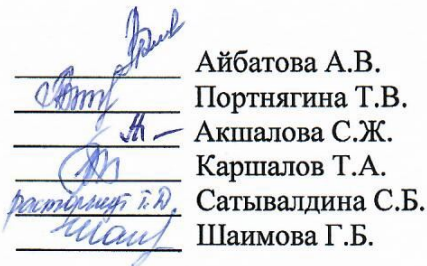 Айбатова А.В.
Портнягина Т.В.
Акшалова С.Ж.
Каршалов Т.А.
расторгнут т.д. Сатывалдина С.Б.
Шаимова Г.Б.